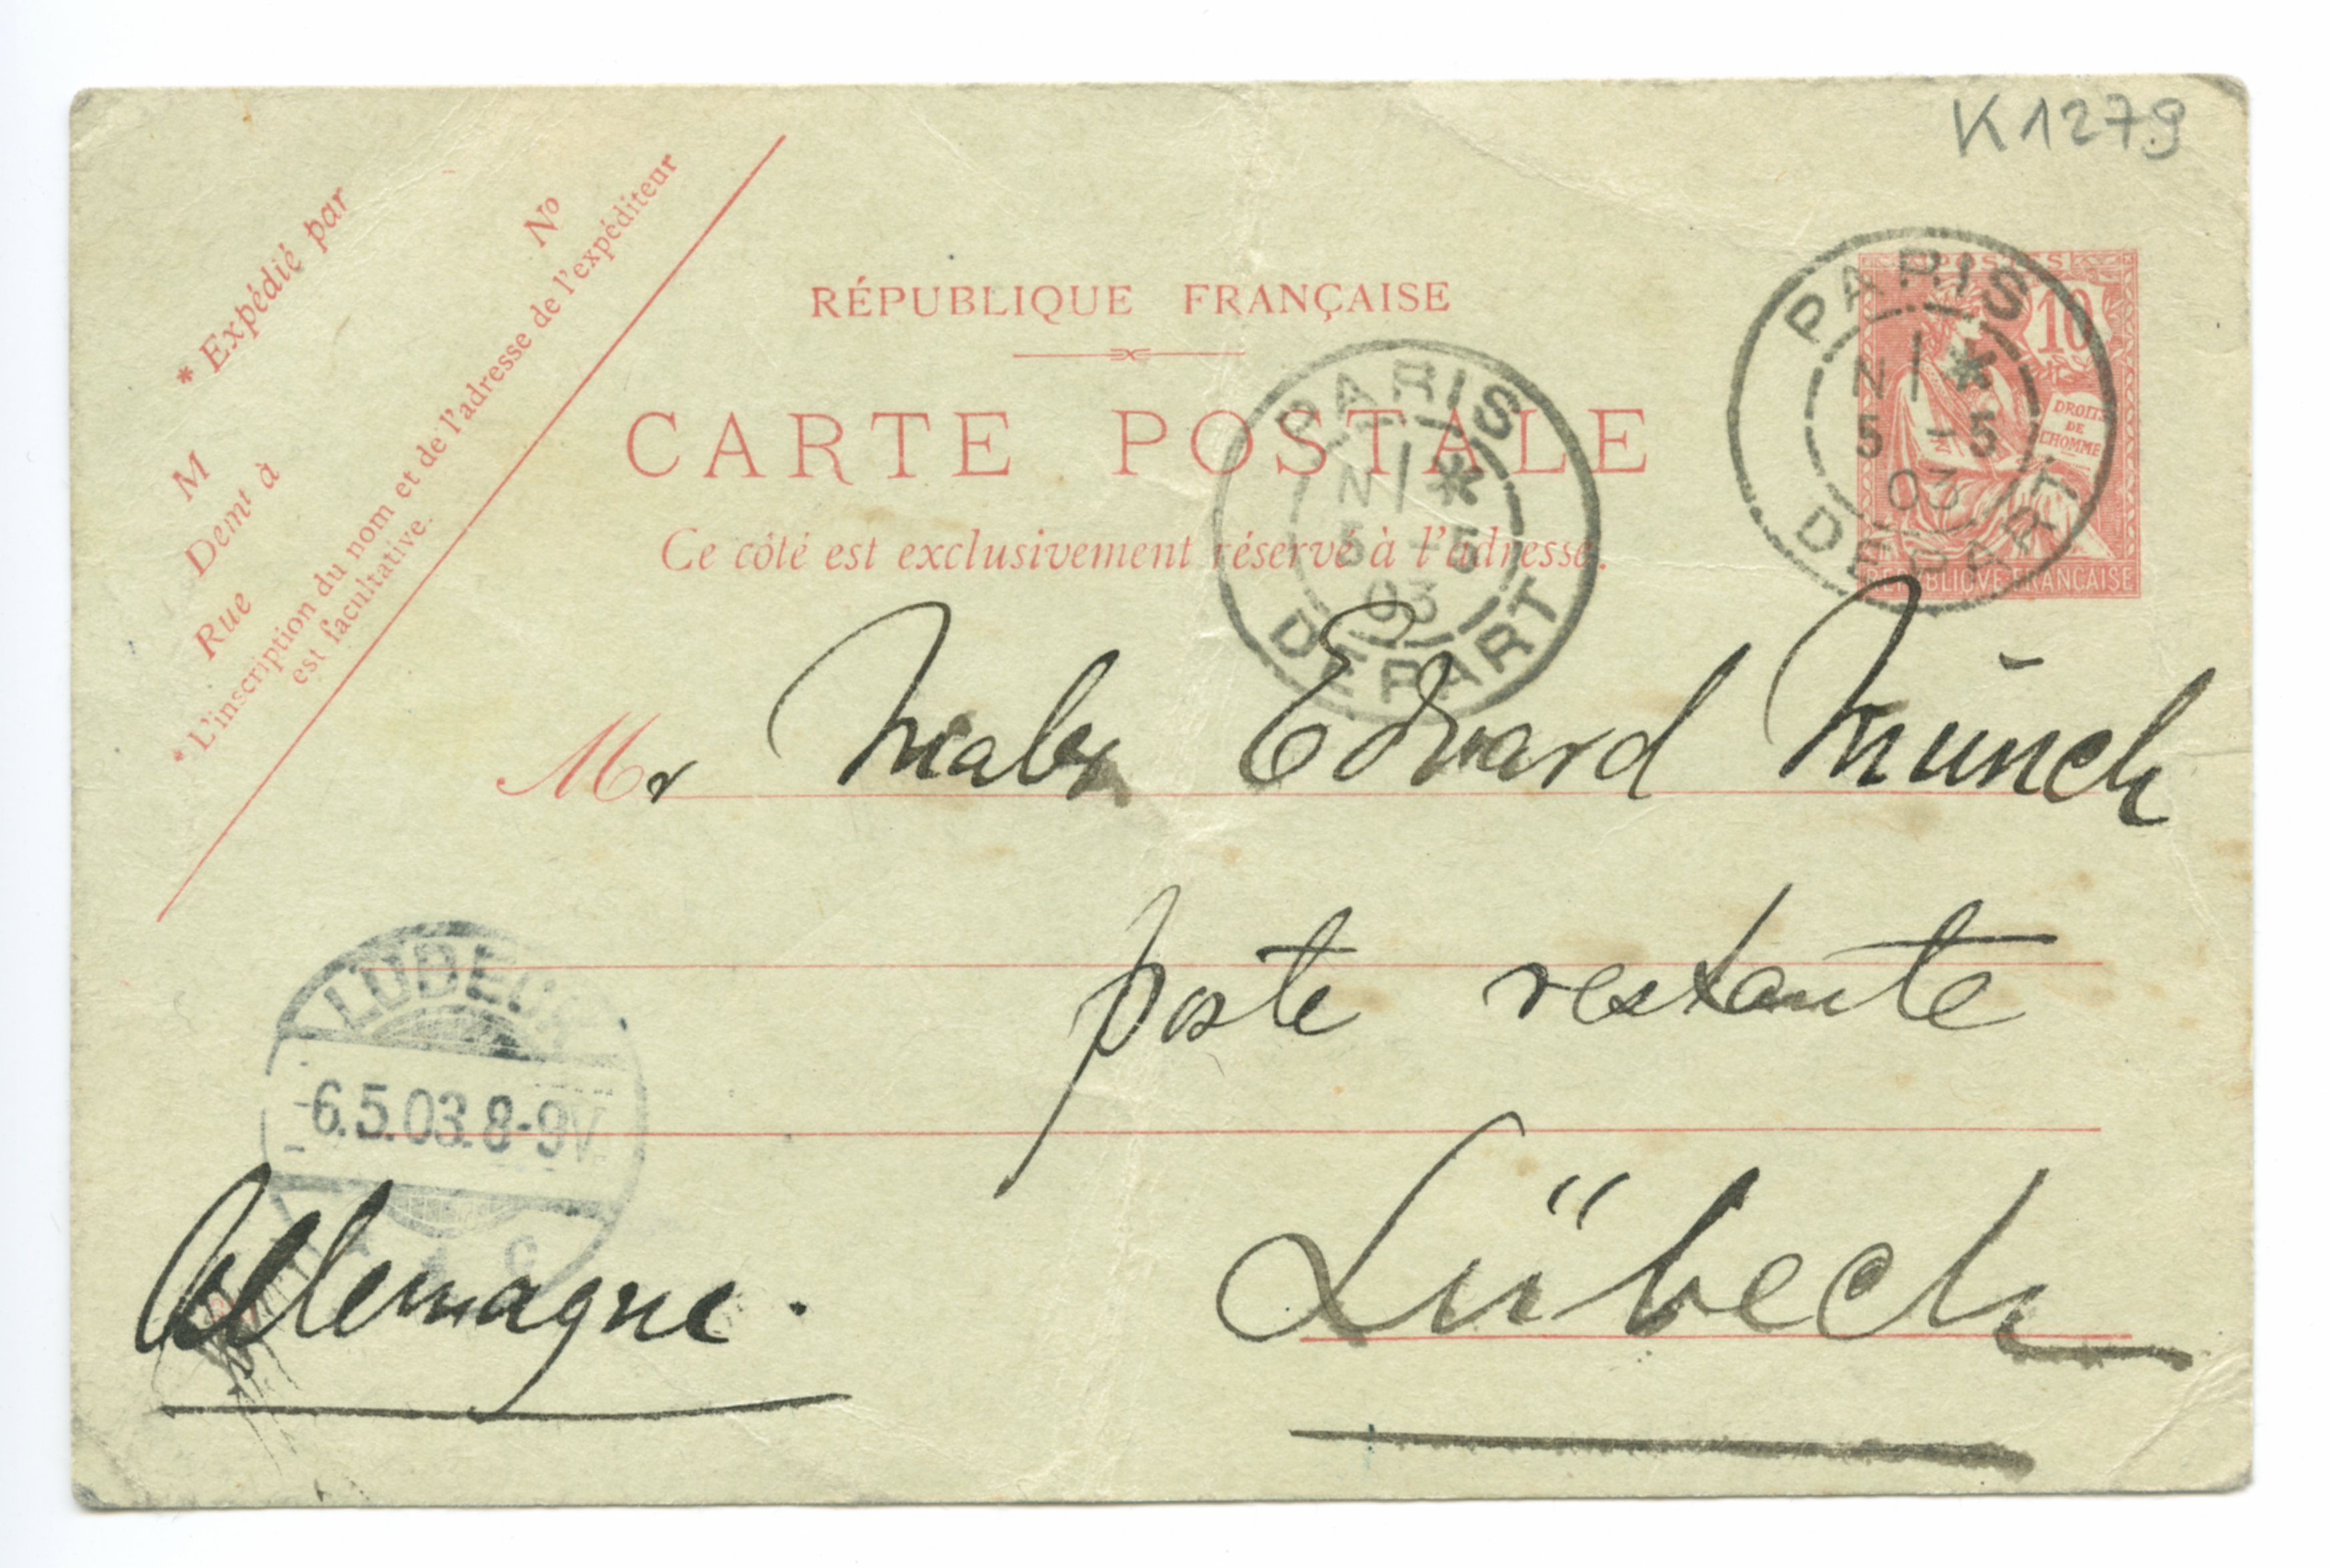 K1279
* Expédié par
No
M
Demt à
Rue
* L'inscription du nom et de l'adresse de l'expéditeur
est facultative.
RÉPUBLIQUE FRANÇAISE
CARTE POSTALE
Ce côté est exclusivement réservé à l'adresse.
POSTES
10
DROITS
DE
L'HOMME
REPUBLIQUE FRANÇAISE
PARIS
N *
5 -5
03
DEPART
PARIS
N *
5 -5
03
DEPART
Mr Maler Edvard Munch
poste restante
LÜBECK
-6.5.03.8-9V.
* 1 C
Lübeck
Allemagne.